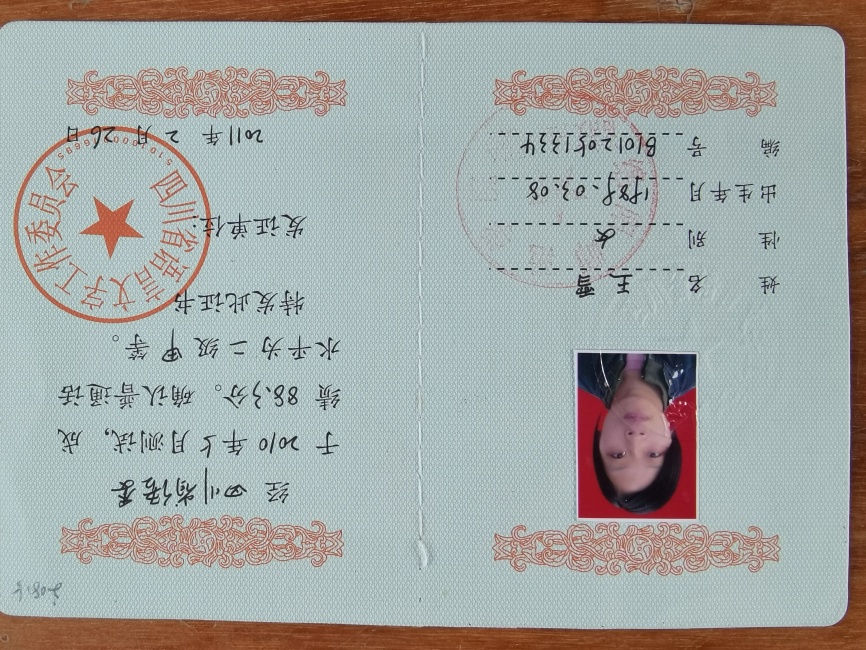 姓 名 王雪
性 别 女
出生年月 1989.03.08
编 号 B1012051334
经 四川省语委
于 2010 年 5 月测试，成
绩 88.3 分。确认普通话
水平为 二 级 甲 等。
特发此证书
发证单位：
四川省语言文字工作委员会
2011 年 2 月 26 日